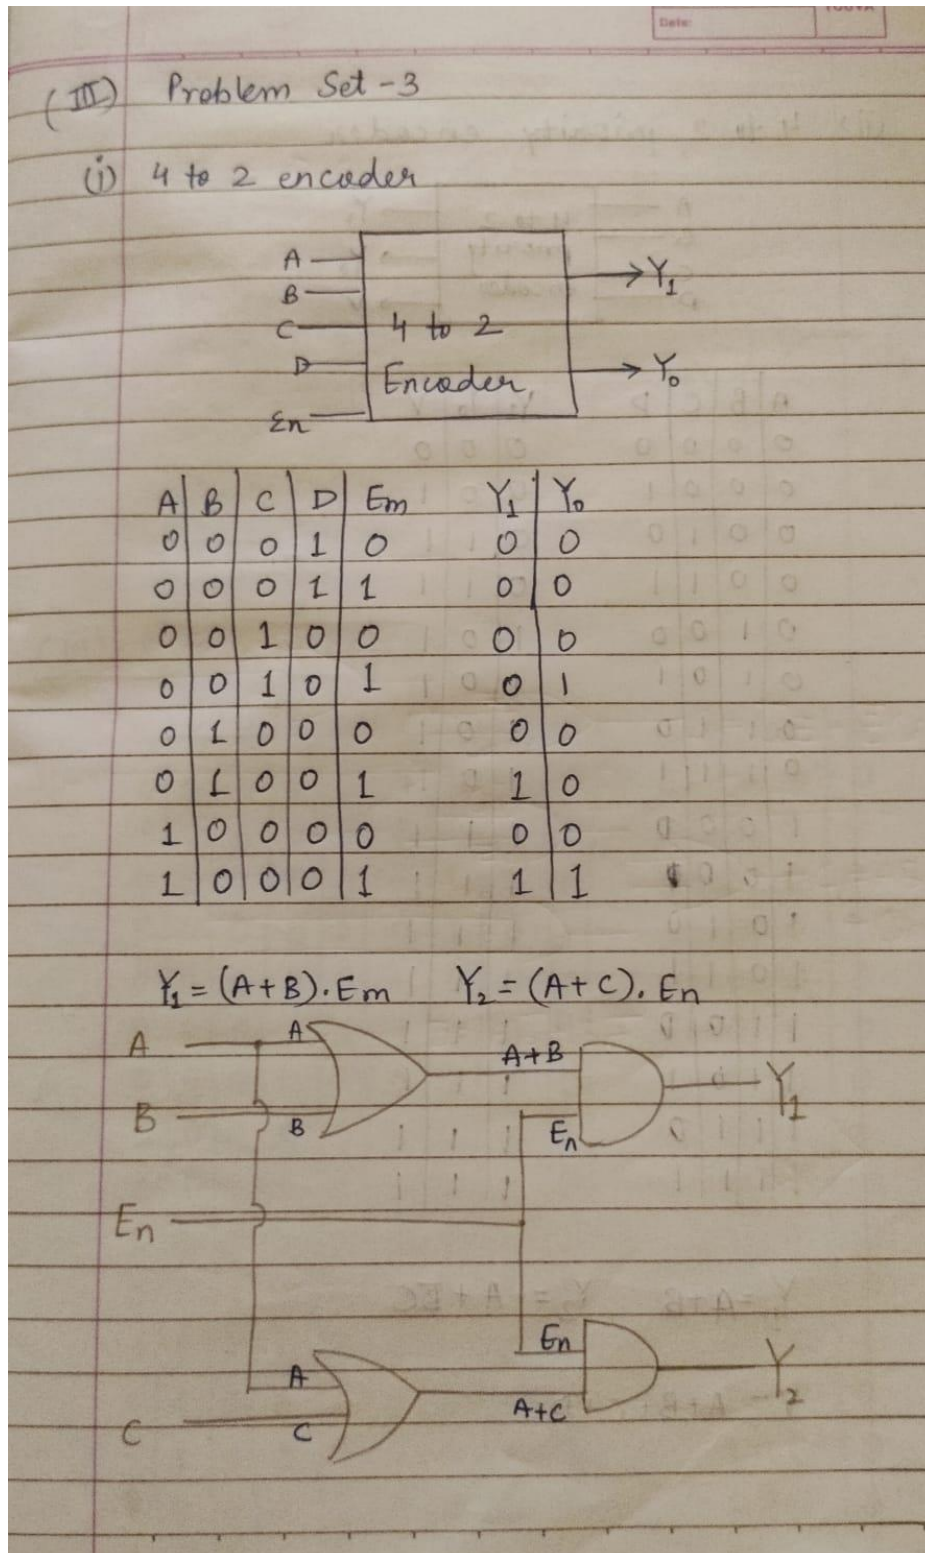 Date:
(III) Problem Set - 3
(i) 4 to 2 encoder
A
B
C
D
En
4 to 2
Encoder
Y₁
Y₀
A B C D Em Y₁ Y₀
0 0 0 1 0 0 0
0 0 0 1 1 0 0
0 0 1 0 0 0 0
0 0 1 0 1 0 1
0 1 0 0 0 0 0
0 1 0 0 1 1 0
1 0 0 0 0 0 0
1 0 0 0 1 1 1
Y₁ = (A+B).Em Y₂ = (A+C).En
A A A+B
B B En Y₁
En
En
A Y₂
C C A+C